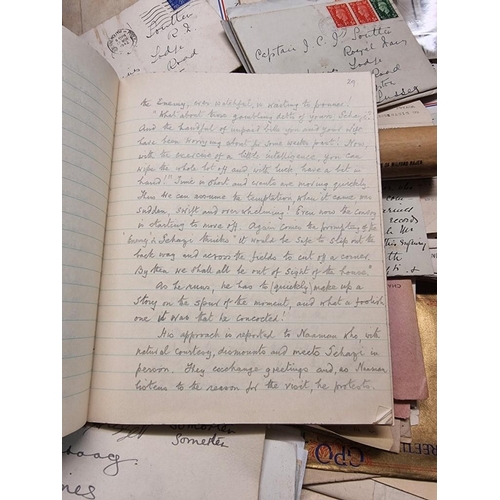 Southern
R I
Lodge
Road
Captain J. C. I. Southern
Royal Navy
Lodge
Road
Sussex
29
the Enemy, was watchful, & waiting to pounce!
"What about those gambling debts of yours Gehazi?
And the handful of unpaid bills you and your wife
have been worrying about for some weeks past! Now,
with the exercise of a little intelligence, you can
wipe the whole lot off and, with luck, have a bit in
hand!" Time is short and events are moving quickly.
Thus we can assume the temptation, when it came was
sudden, swift and overwhelming! Even now the convoy
is starting to move off. Again comes the prompting of the
Enemy in Gehazi's it would be safe to slip out the
back way and across the fields to cut off a corner.
By then we shall all be out of sight of the house"
As he runs, he has to (quickly) make up a
story on the spur of the moment, and what a foolish
one it was that he concocted!
His approach is reported to Naaman who, with
natural courtesy, dismounts and meets Gehazi in
person. They exchange greetings and, as Naaman
listens to the reason for the visit, he protests.
records
Somerton
Somerton
GPO